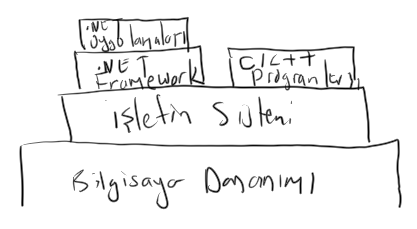 .NET
Uygulamaları
.NET
Framework
C/C++
Programları
işletim Sistemi
Bilgisaya Donanımı